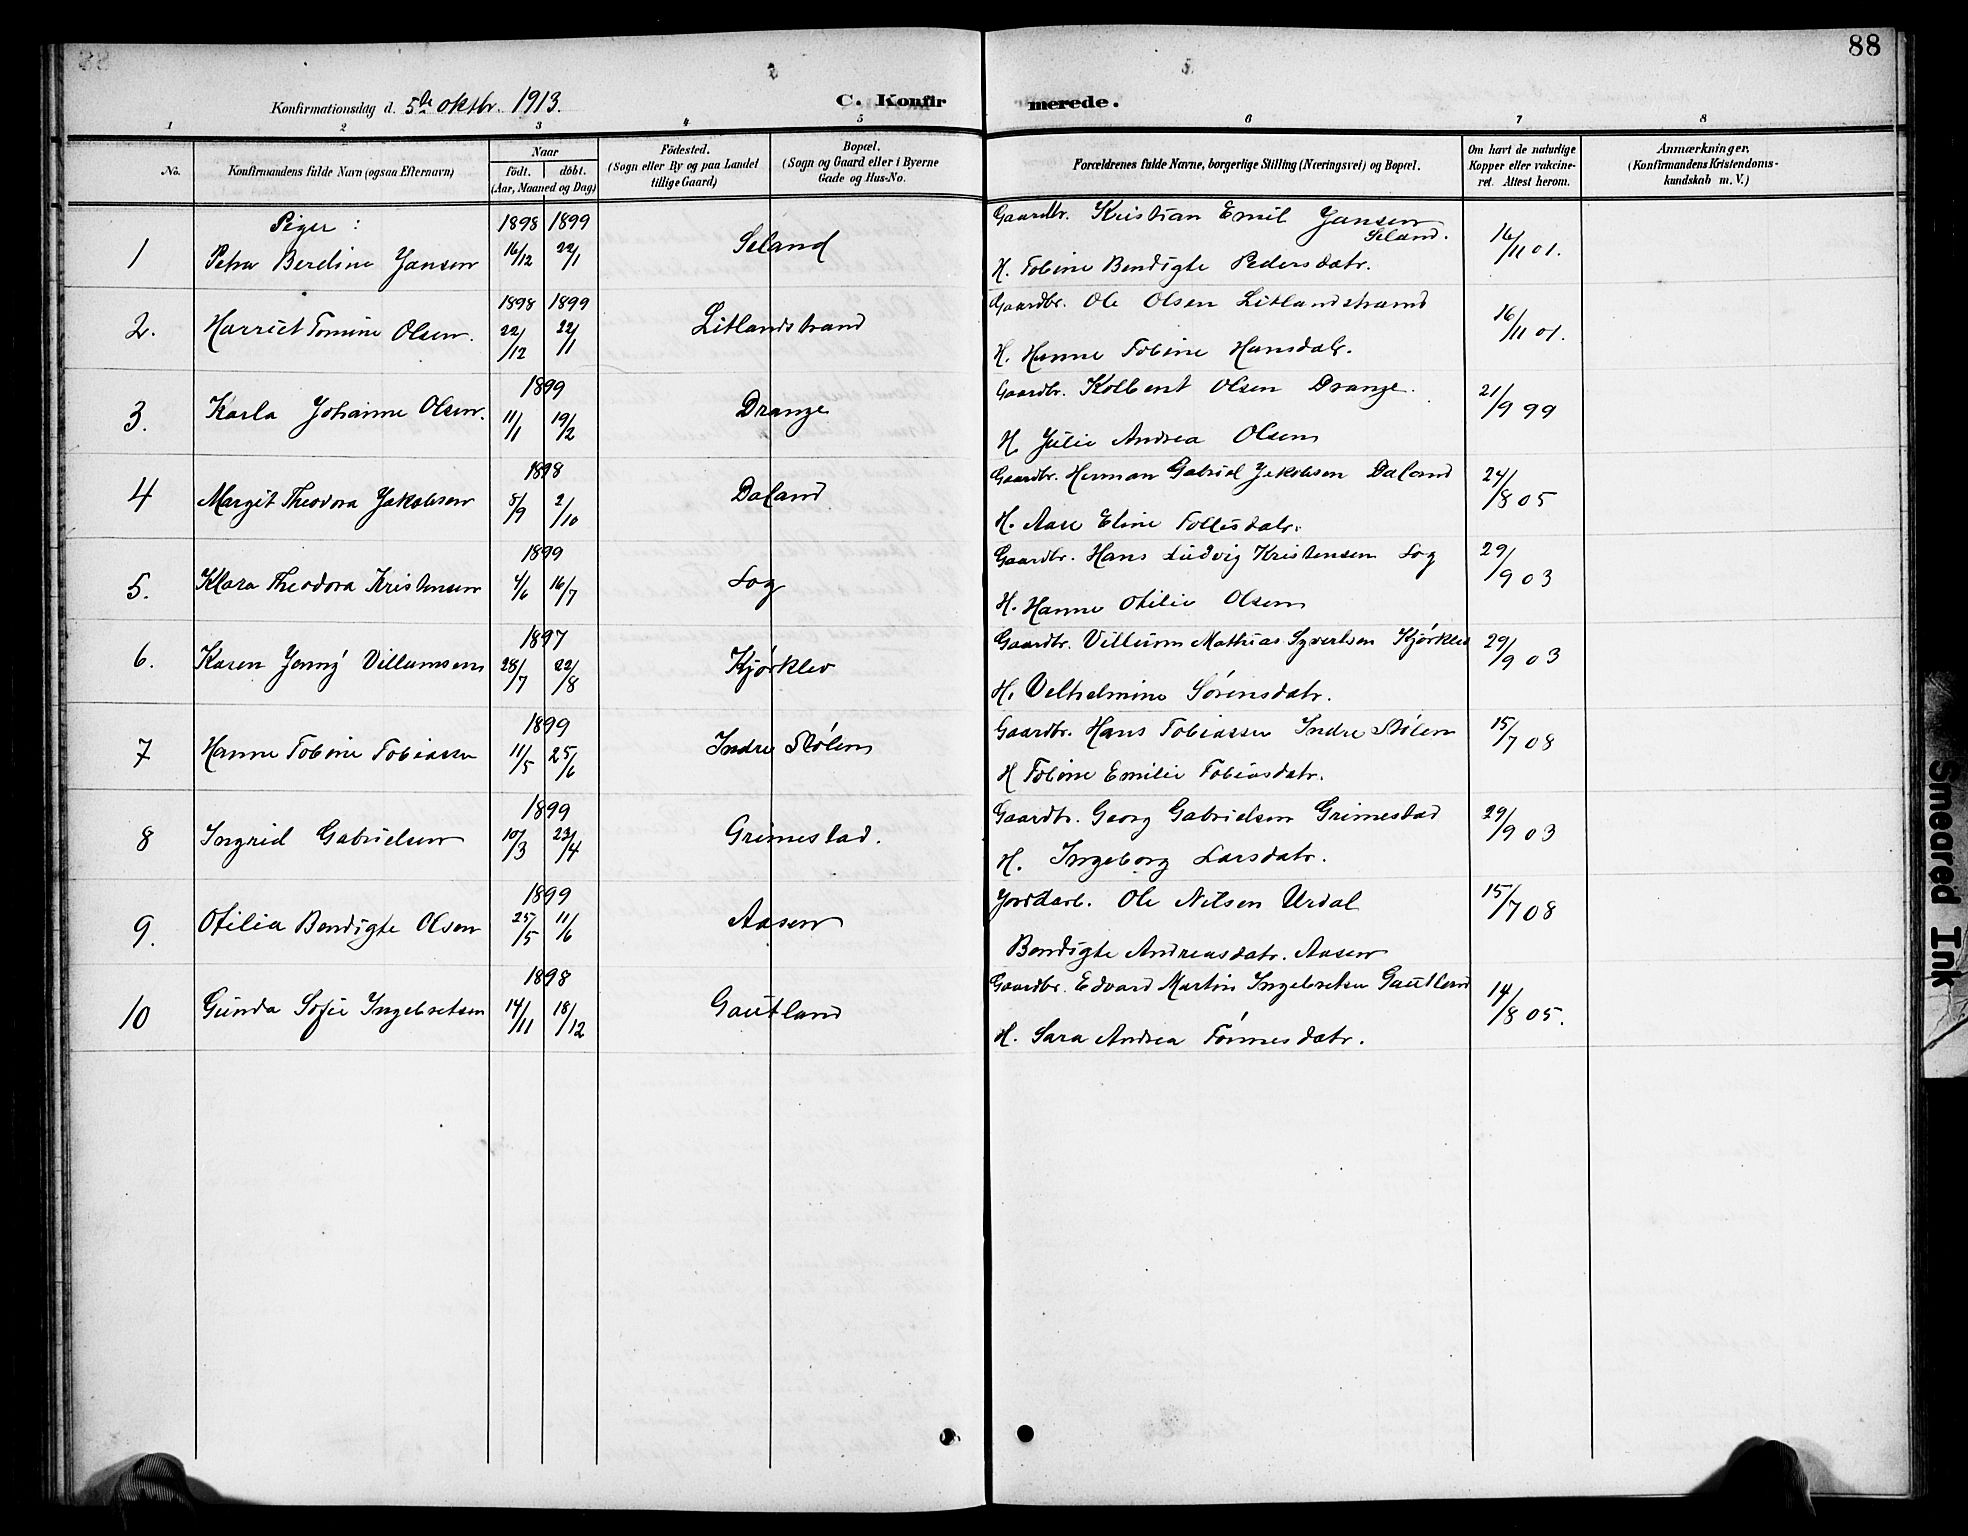 88
Konfirmationsdag d. 5te oktbr. 1913.
C. Konfirmerede.
1 2 3 4 5 6 7 8
No.
Konfirmandens fulde Navn (ogsaa Efternavn)
Naar
födt. döbt.
(Aar, Maaned og Dag)
Födested.
(Sogn eller By og paa Landet
tillige Gaard)
Bopæl.
(Sogn og Gaard eller i Byerne
Gade og Hus-No.
Forældrenes fulde Navne, borgerlige Stilling (Næringsvei) og Bopæl.
Om havt de naturlige
Kopper eller vakcine-
ret. Attest herom.
Anmærkninger,
(Konfirmandens Kristendoms-
kundskab m. V.)
Piger:
1898 1899
1 Petra Berdine Jansen 16/12 22/1 Seland
Gaardbr. Kristian Emil Jansen
Seland.
H. Tobine Bendigte Pedersdatr.
16/11 01.
1898 1899
2. Harriet Tomine Olsen. 22/12 22/1 Litlandstrand
Gaardbr. Ole Olsen Litlandstrand
H. Hanne Tobine Hansdatr.
16/11 01.
1899
3. Karla Johanne Olsen. 11/1 19/2 Drange
Gaardbr. Kolbent Olsen Drange.
H. Julie Andrea Olsen
21/9 99
1898
4 Margit Theodora Jakobsen 8/9 2/10 Daland
Gaardbr. Herman Gabriel Jakobsen Daland
H. Aase Eline Tollisdatr.
24/8 05
1899
5. Klara Theodora Kristensen 4/6 16/7 Log
Gaardbr. Hans Ludvig Kristensen Log
H. Hanne Otilie Olsen
29/9 03
1897
6. Karen Jenny Villumsen 28/7 22/8 Kjørklev
Gaardbr. Villum Mathias Syvertsen Kjørklev
H. Velhelmine Sørensdatr.
29/9 03
1899
7 Hanne Tobine Tobiassen 11/5 25/6 Indre Stølen
Gaardbr. Hans Tobiassen Indre Stølen
H Tobine Emilie Tobiasdatr.
15/7 08
1899
8 Ingrid Gabrielsen 10/3 23/4 Grimestad.
Gaardbr. Georg Gabrielsen Grimestad
H. Ingeborg Larsdatr.
29/9 03
1899
9. Otilia Bendigte Olsen 25/5 11/6 Aasen
Jordarb. Ole Nilsen Urdal
Bendigte Andreasdatr. Aasen
15/7 08
1898
10 Gunda Sofie Ingebretsen 14/11 18/12 Gautland
Gaardbr. Edvard Martin Ingebretsen Gautland
H. Sara Andrea Tønnesdatr.
14/8 05.
Smeared Ink